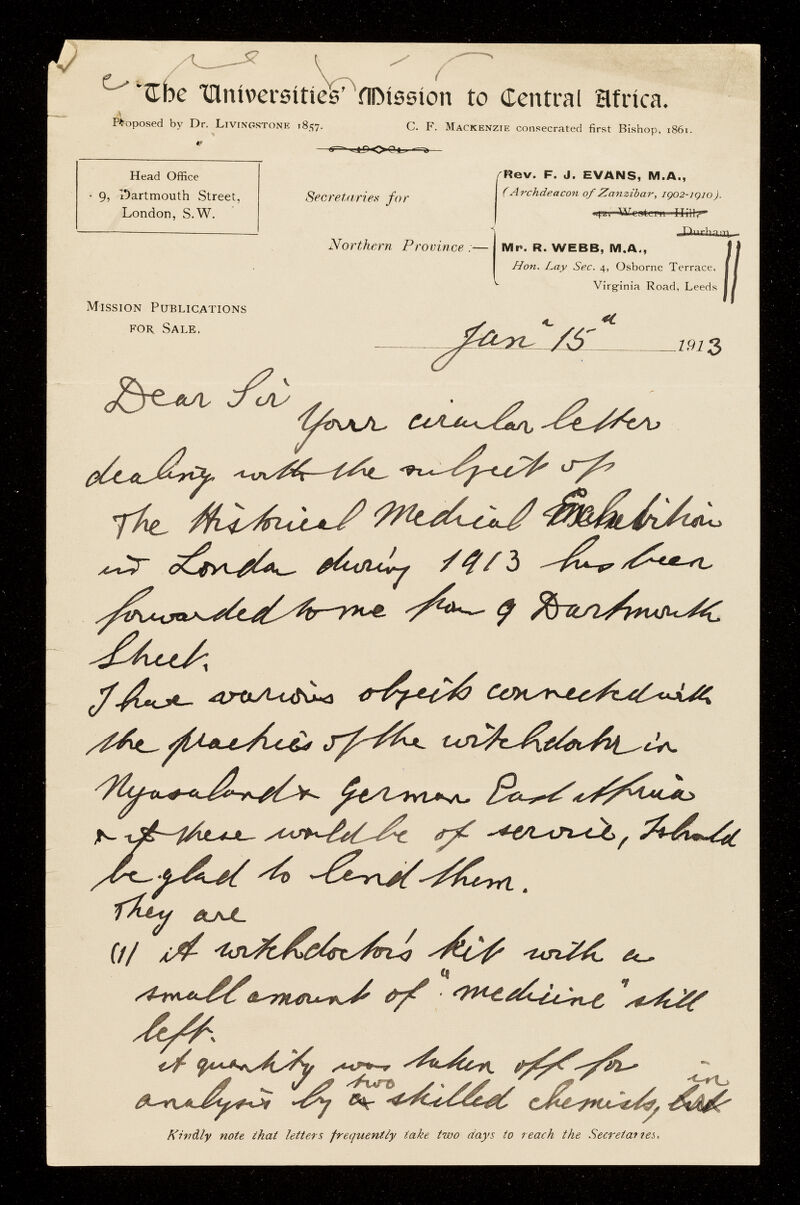 The Universities' Mission to Central Africa.
Proposed by Dr. LIVINGSTONE 1857.
C. F. MACKENZIE consecrated first Bishop, 1861.
Head Office
9, Dartmouth Street,
London, S.W.
Secretaries for
Northern Province :—
Rev. F. J. EVANS, M.A.,
(Archdeacon of Zanzibar, 1902-1910).
42, Western Hill,
Durham
Mr. R. WEBB, M.A.,
Hon. Lay Sec. 4, Osborne Terrace,
Virginia Road, Leeds
MISSION PUBLICATIONS
FOR SALE.
Jan 15 1913
Dear Sir
Your circular letter
dealing with the subject of
The Historical Medical Exhibition
in London during 1913 has been
forwarded to me from 9 Dartmouth
Street.
I have various objects connected with
the practices of the witchdoctor in
Nyasaland & German East Africa
& if these would be of service, I should
be glad to lend them.
They are
(1) A witchdoctor's kit with a
small amount of "medicine" still
left.
A quantity was taken off for
analysis by a two skilled chemists, but in
Kindly note that letters frequently take two days to reach the Secretaries.